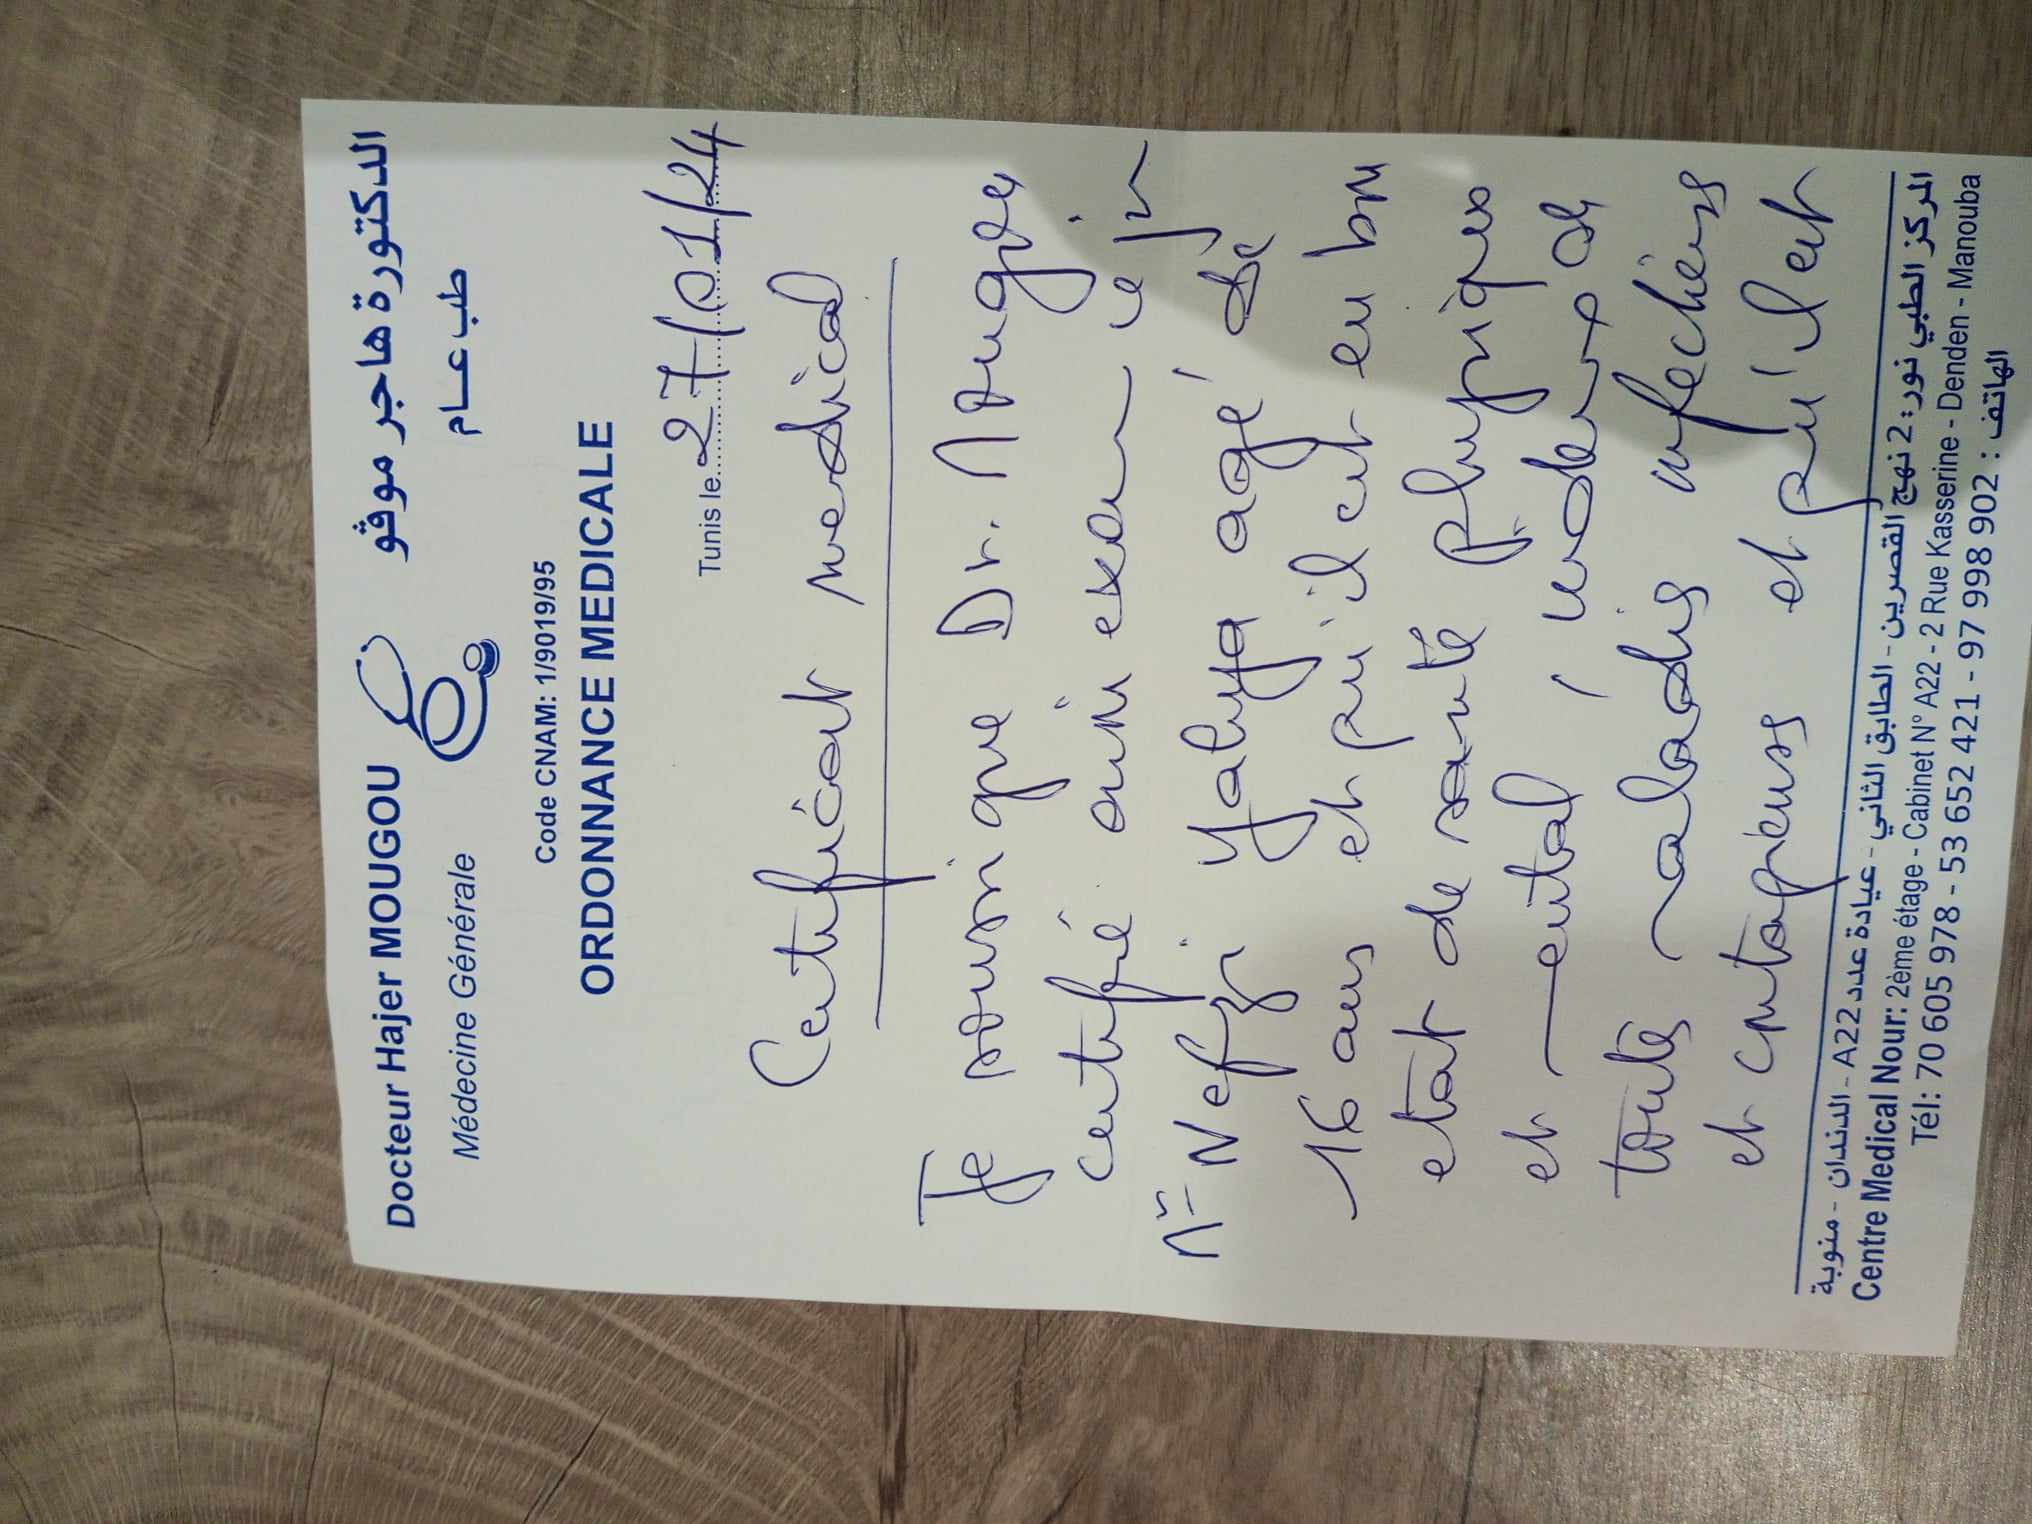 Docteur Hajer MOUGOU
الدكتورة هاجر موڤو
Médecine Générale
طب عـــام
Code CNAM: 1/9019/95
ORDONNANCE MEDICALE
Tunis le 27/01/24
Certificat medical
Je soussigne Dr. Mougou
certifié avoir examiner ce jr
Mr Nefzi Yahya agé de
16 ans et qu'il est en bon
etat de santé physiques
et mental indemne de
toutes maladies infectieus
et contagieuses et qu'il est
المركز الطبي نور: 2 نهج القصرين - الطابق الثاني - عيادة عدد A22 - الدندان - منوبة
Centre Medical Nour: 2ème étage - Cabinet N° A22 - 2 Rue Kasserine - Denden - Manouba
Tél: 70 605 978 - 53 652 421 - 97 998 902 : الهاتف